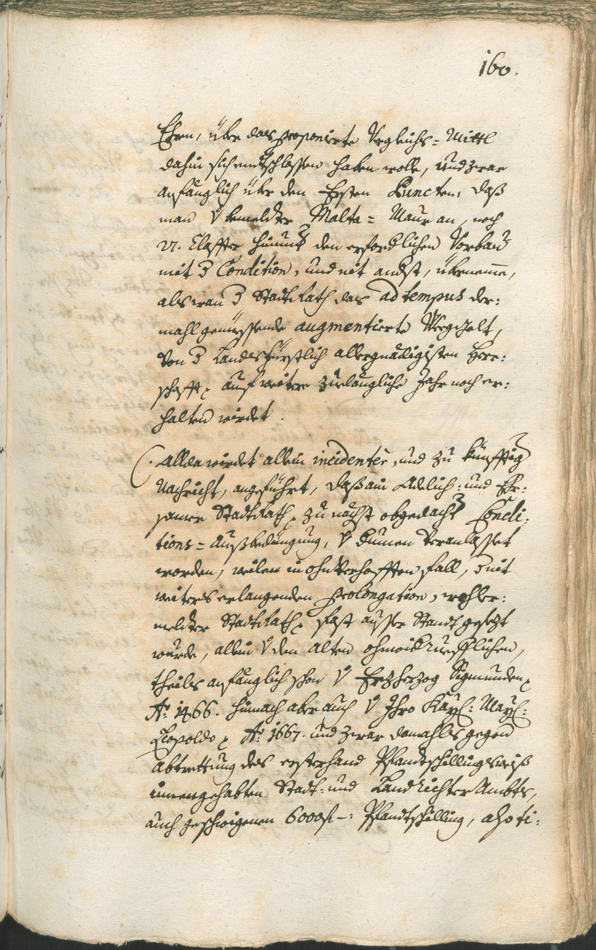 160.
Ehren, über das proponierte Vergleichs=Mittl
dahin sich entschlossen haben wolle, und zwar
anfänglich über den Ersten Puncten, daß
man v bemelter Malta=Maur an, noch
vi. Claffter hinumb den erfordlichen Vorbau
mit d Condition, und nit andst, überneme,
als wan d StadtRath das ad tempus der:
mahl genüessende augmentierte Weggelt,
von d Landtsfürstlich allergnädigisten Herr:
schafft auf weitere zuelängliche Jahr noch er:
halten wirdet.
Allda wirdet allein incidenter, und zu künfftig
Nachricht, angeführt, daß ain Adelich: und Ehr:
samer StadtRath zu nechst obgedacht Condi:
tions=Außbedingung, v darumen veranlasset
worden, weilen in ohnverhofften fall, d nit
weiters erlangenden Prolongation, wohler:
melter StadtRath fast ausser Standt gesezt
wurde, allein v den alten ohnwidrrueflichen,
theils anfänglich schon v Erzherzog Sigmunden
Aº: 1466. hinnach aber auch v Ihro Kayl: Mayl:
Leopoldo Aº: 1667. und zwar damahls gegen
Abtrettung des ersterhand Pfandtschillingsweiß
innengehabten Statt: und Landrichter Ambts,
auch geschwigenen 6000 f –: Pfandtschilling, a